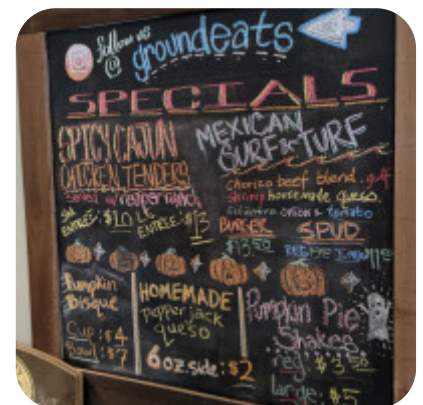 follow us
@ groundeats
SPECIALS
SPICY CAJUN
CHICKEN TENDERS
Served w/ reaper ranch
SM ENTRÉE: $10 LG ENTRÉE: $13
MEXICAN
SURF & TURF
chorizo beef blend. gulf
shrimp homemade queso.
cilantro onion & tomato
BURGER SPUD
$13.50
Pumpkin
Bisque
Cup: $4
Bowl: $7
HOMEMADE
pepper jack
queso
6 oz. side: $2
Pumpkin Pie
Shakes
reg: $3.50
large: $5